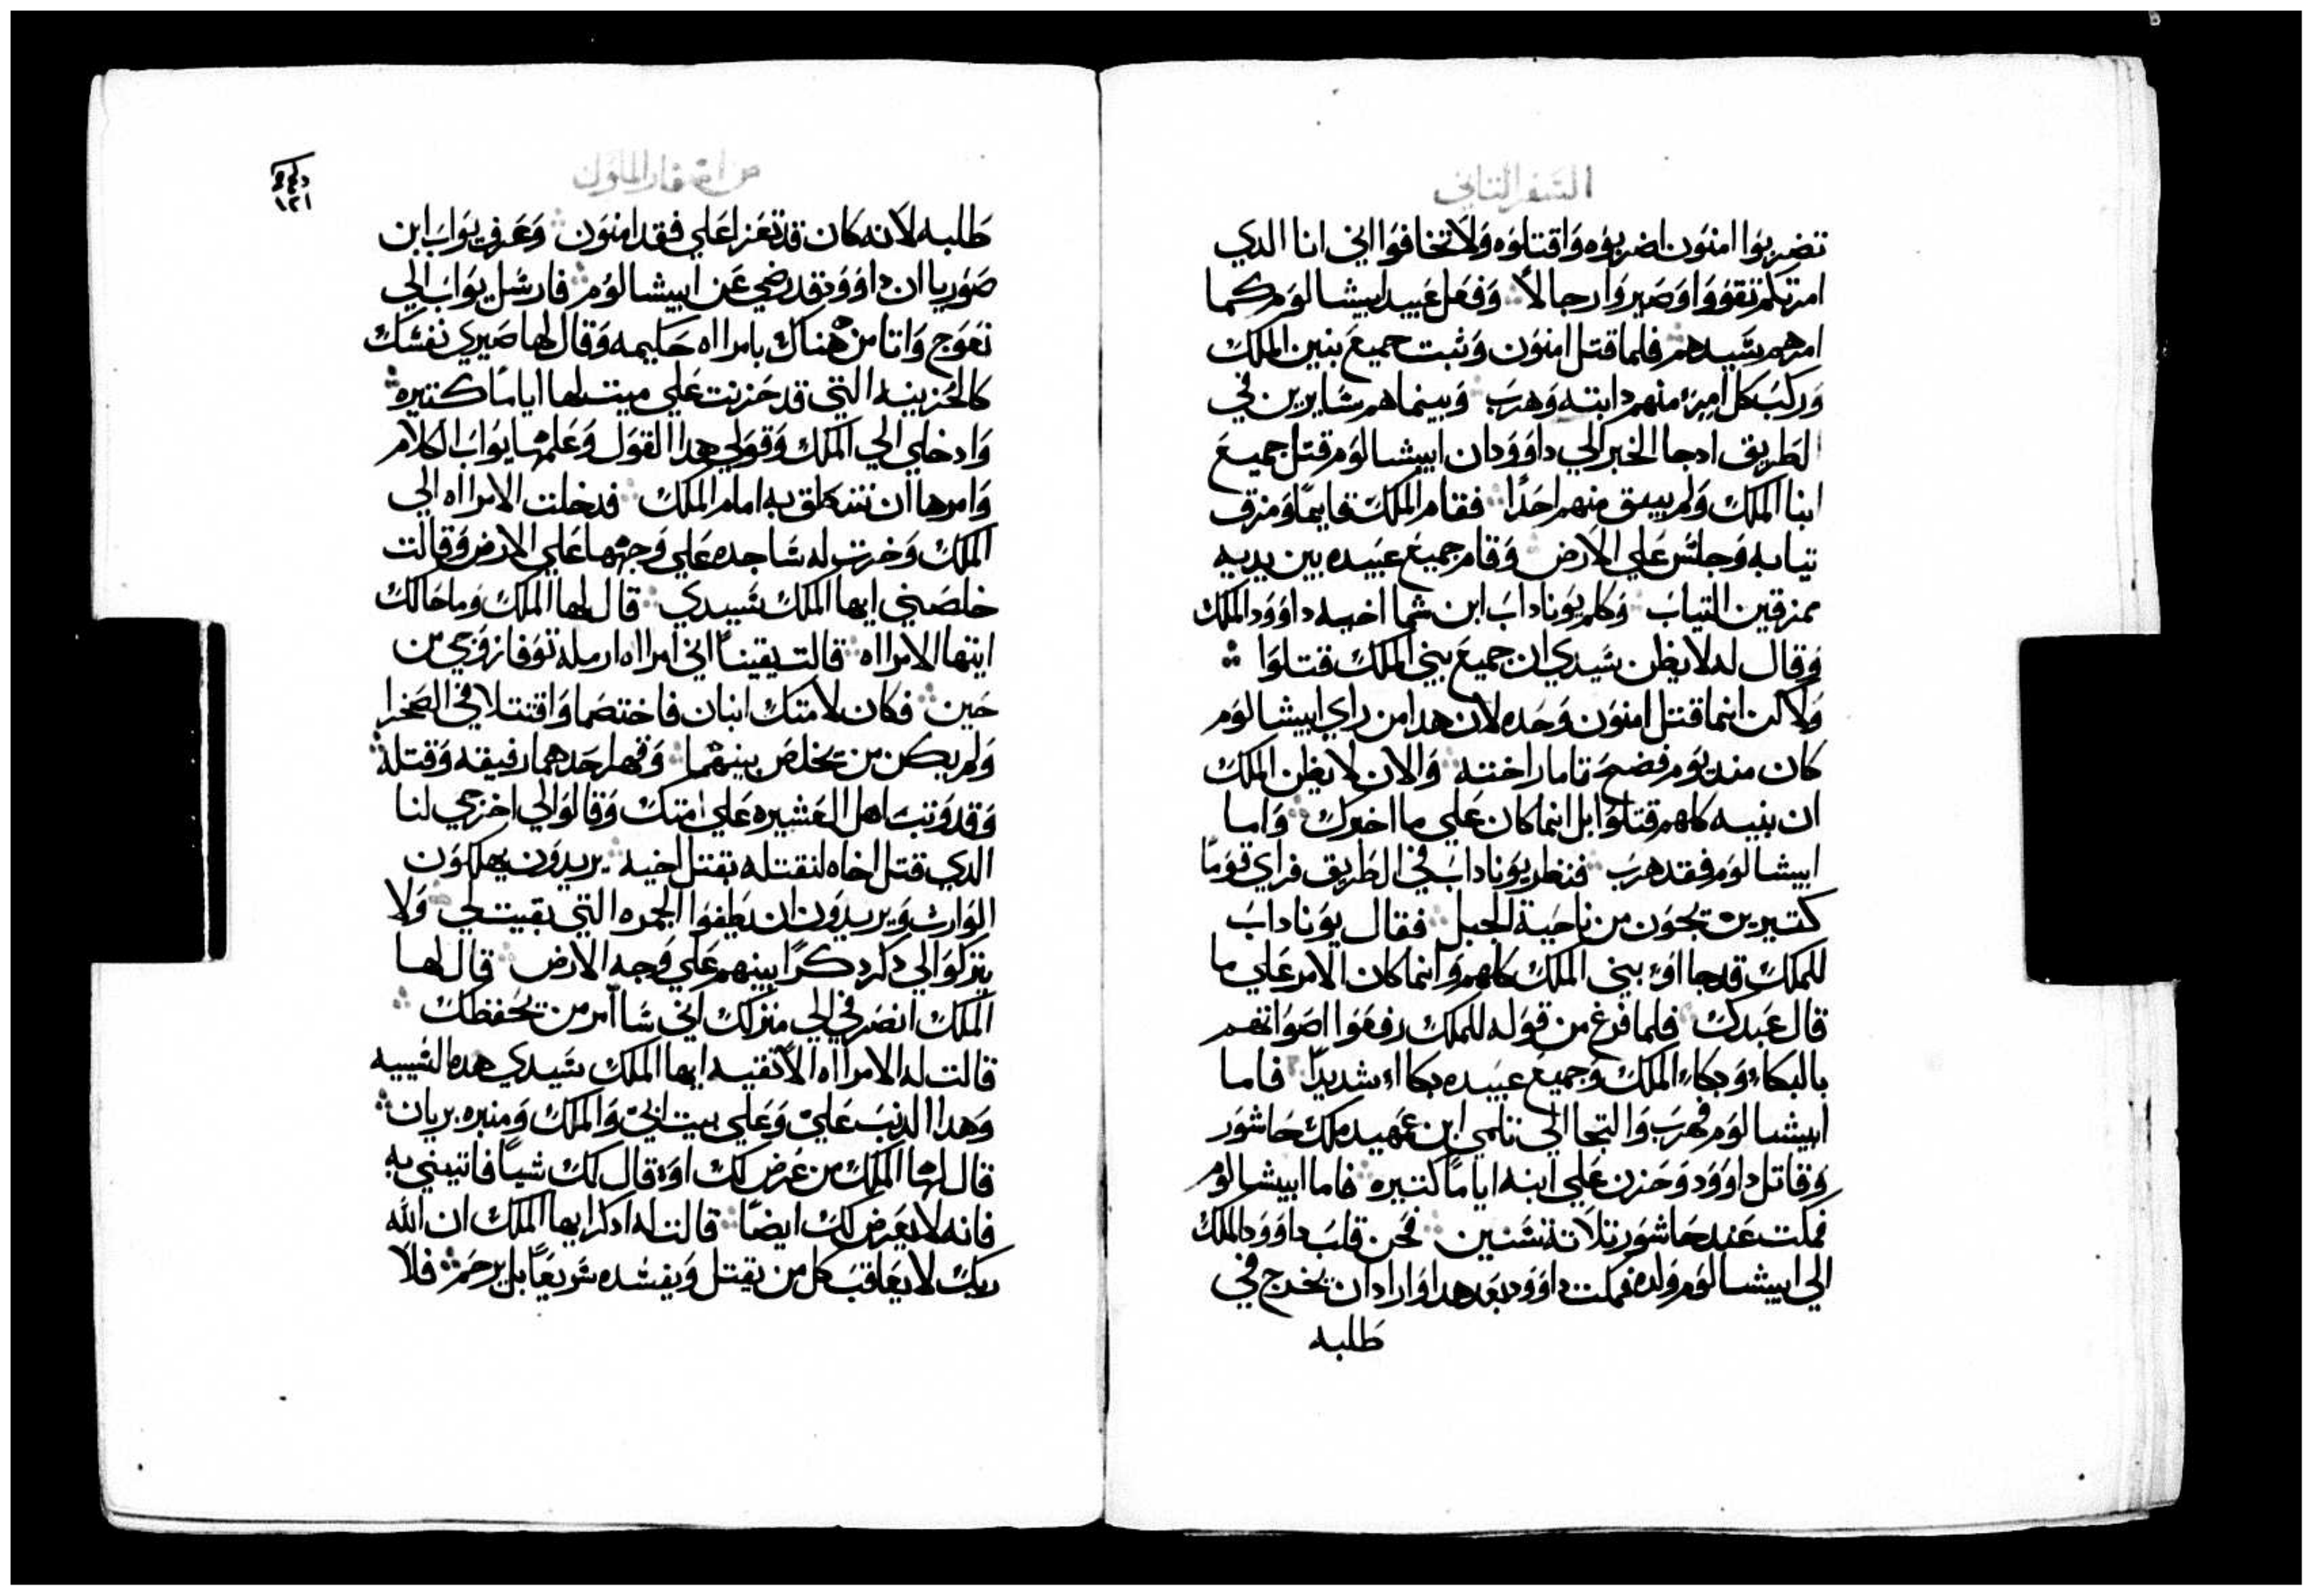 السفر التاني
تضربوا امنون اضربوه واقتلوه ولا تخافوا اني انا الدي
امرتكم تقووا وصيروا رجالاً وفعل عبيد ابيشالوم كما
امرهم سيدهم فلما قتل امنون وثبت جميع بنين الملك
وركب كل امرء منهم دابته وهرب وبينما هم سايرين في
الطريق ادجا الخبر الي داوود ان ابيشالوم قتل جميع
ابنا الملك ولم يبيق منهم احدًا فقام الملك قايمًا ومزق
تيابه وجلس علي الارض وقام جميع عبيده بين يديه
ممزقين التياب وكلم يوناداب ابن شما اخيه داوود الملك
وقال له لا يظن سيدي ان جميع بني الملك قتلوا
ولاكن انما قتل امنون وحده لان هدا من راي ابيشالوم
كان مند يوم فضح تامار اخته والان لا يظن الملك
ان بنيه كلهم قتلوا بل انما كان علي ما اخبرك واما
ابيشالوم فقد هرب فنظر يوناداب في الطريق فراي قومًا
كتيرين يجون من ناحية الجبل فقال يوناداب
للملك قد جااوء بني الملك كلهم وانما كان الامر علي ما
قال عبدك فلما فرغ من قوله للملك رفعوا اصواتهم
بالبكاء وبكاء الملك وجميع عبيده بكااء شديدًا فاما
ابيشالوم فهرب والتجا الي تلمي ابن عمهيد ملك حاشور
وقاتل داوود وحزن علي ابنه ايامًا كتيره فاما ابيشالوم
فمكت عند حاشور تلاتة سنين فحن قلب داوود الملك
الي ابيشالوم ولده فمكت داوود بعد هدا وارادان يخرج في
طلبه
من اسفار الملوك
١٢١
طلبه لانه كان قد تعزا علي فقد امنون وعرف يواب ابن
صوريا ان داوود قد رضي عن ابيشالوم فارسل يواب الي
تعوج واتا من هناك بامرااه حكيمه وقال لها صيري نفسك
كالحزينه التي قد حزنت علي ميت لها ايامًا كتيره
وادخلي الي الملك وقولي هدا القول وعلمها يواب الكلام
وامرها ان تنطق به امام الملك فدخلت الامرااه الي
الملك وخرت له ساجده علي وجهها علي الارض وقالت
خلصني ايها الملك سيدي قال لها الملك وما حالك
ايتها الامرااه قالت يقينًا اني امرااه ارمله توفا زوجي من
حين فكان لامتك ابنان فاختصما واقتتلا في الصخرا
ولم يكن من يخلص بينهما وقهر احدهما رفيقه وقتله
وقد وتب اهل العشيره علي امتك وقالوا لي اخرجي لنا
الدي قتل اخاه لنقتله بقتل اخيه يريدون يهلكون
الوارت ويريدون ان يطفوا الجمره التي بقيت لي ولا
يتركوا لي دكر دكرًا بينهم علي وجه الارض قال لها
الملك انصرفي الي منزلك اني ساامر من يحفظك
قالت له الامرااه الاتقيه ايها الملك سيدي هده السيييه
وهدا الدنب علي وعلي بيت ابي والملك ومنبره بريان
قال لها الملك من عرض لك اوء قال لك شياً فاتيني به
فانه لا يعرض لك ايضًا قالت له ادكر ايها الملك ان الله
ربك لا يعاقب كل من يقتل ويفسده سريعًا بل يرحم فلا